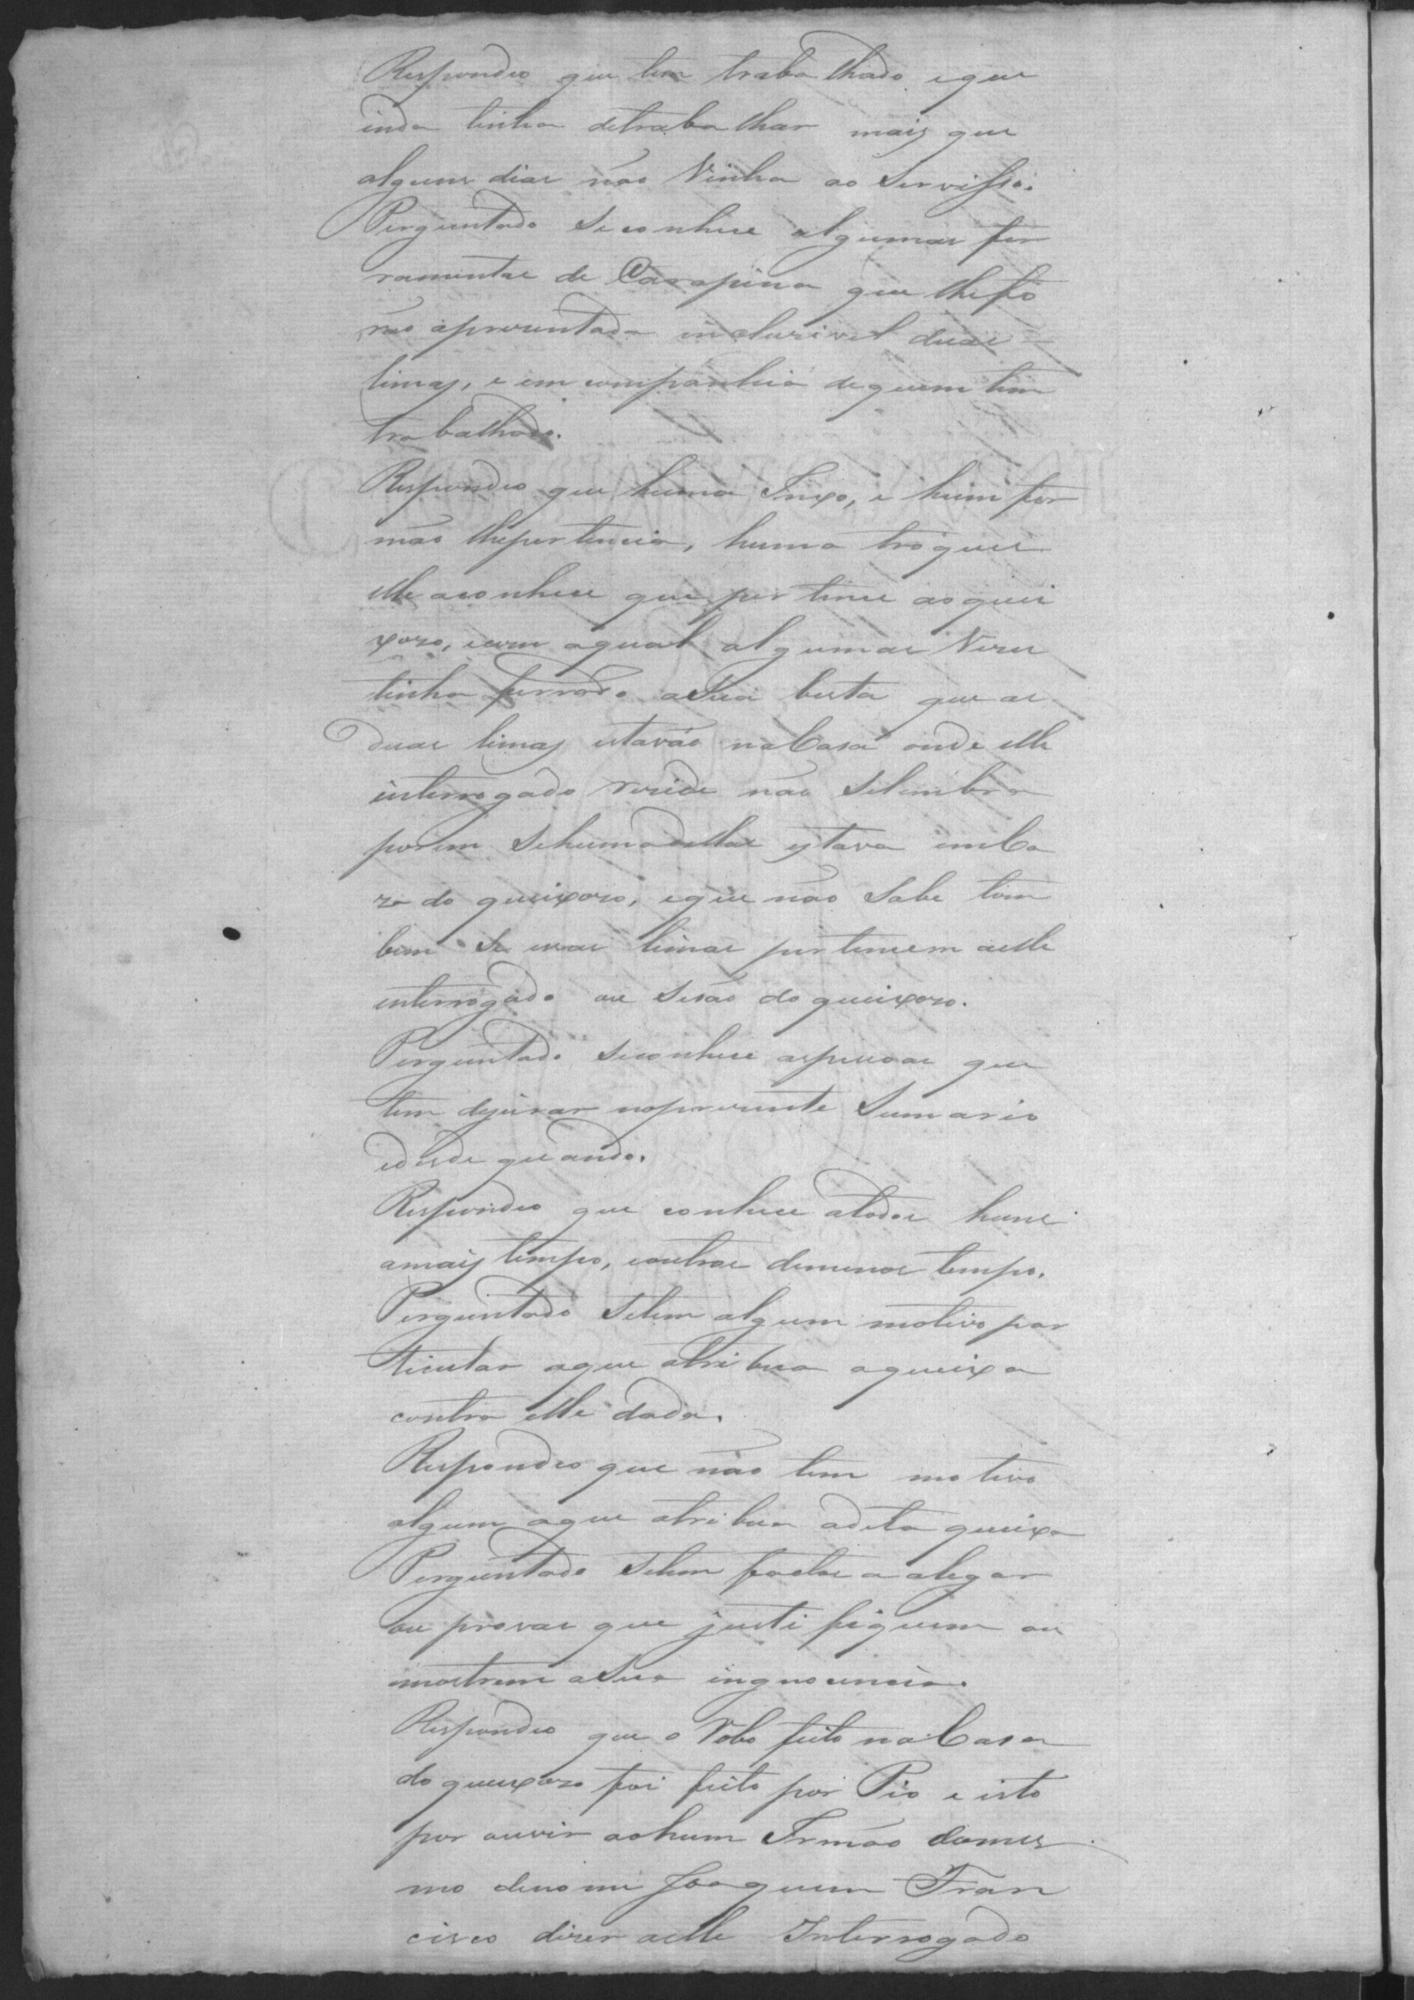 Respondeo que tem trabalhado eque
inda tinha detrabalhar mais que
alguns dias não Vinha ao Servisso.
Perguntado Seconhece algumas fer
ramentas de Carapina que lhefo
rão aprezentada incluzivel duas
limas, e em companhia dequem tem
trabalhado.
Respondeo que huma Enxo, e hum for
mão lhepertencia, huma troquez
elle aconhece que pertence aoquei
xozo, ecom aqual algumas Vezes
tinha ferrado aSua besta que as
duas limas estavão naCasa onde elle
interrogado rezide não Selembra
porem Sehumadellas estava emCa
za do queixozo, eque não Sabe tam
bem Se essas limas pertencem aelle
interrogado ou Sesão do queixozo.
Perguntado Seconhece aspessoas que
tem dejurar noprezente Sumario
edesde quando.
Respondeo que conhece atodos huns
amais tempo, eoutros demenos tempo.
Perguntado Setem algum motivo par
ticular aque atribua aqueixa
contra elle dada.
Respondeo que não tem motivo
algum aque atribua adita queixa
Perguntado Setem factos a alegar
ou provas que justifiquem ou
mostrem aSua ingnocencia.
Respondeo que o Robo feito naCasa
do queixozo foi feito por Pio e isto
por ouvir ahum Irmão domes
mo denome Joaquim Fran
cisco dizer aelle Interrogado